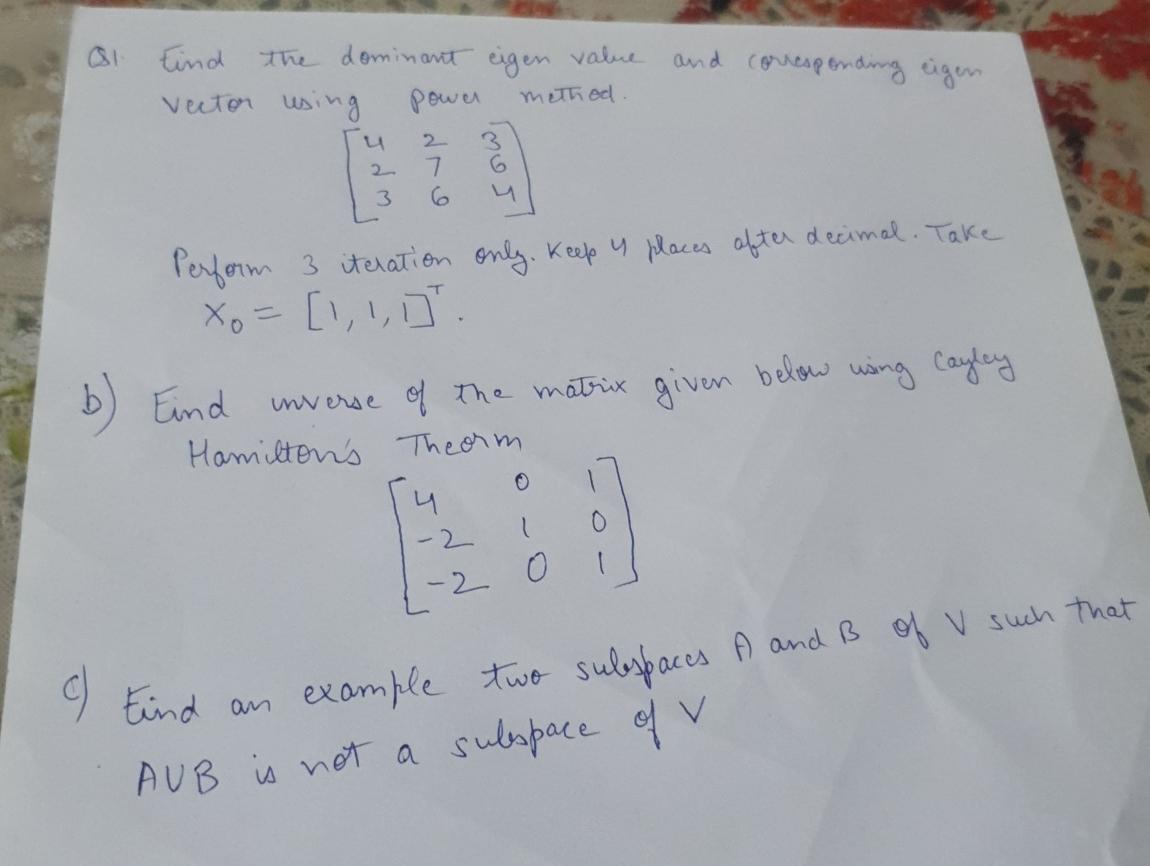 Q1. Find the dominant eigen value and corresponding eigen
vector using power method.
4 2 3
2 7 6
3 6 4
Perform 3 iteration only. Keep 4 places after decimal. Take
X0 = [1, 1, 1]^T.
b) Find inverse of the matrix given below using Cayley
Hamilton's Theorm
4 0 1
-2 1 0
-2 0 1
c) Find an example two subspaces A and B of V such that
AUB is not a subspace of V